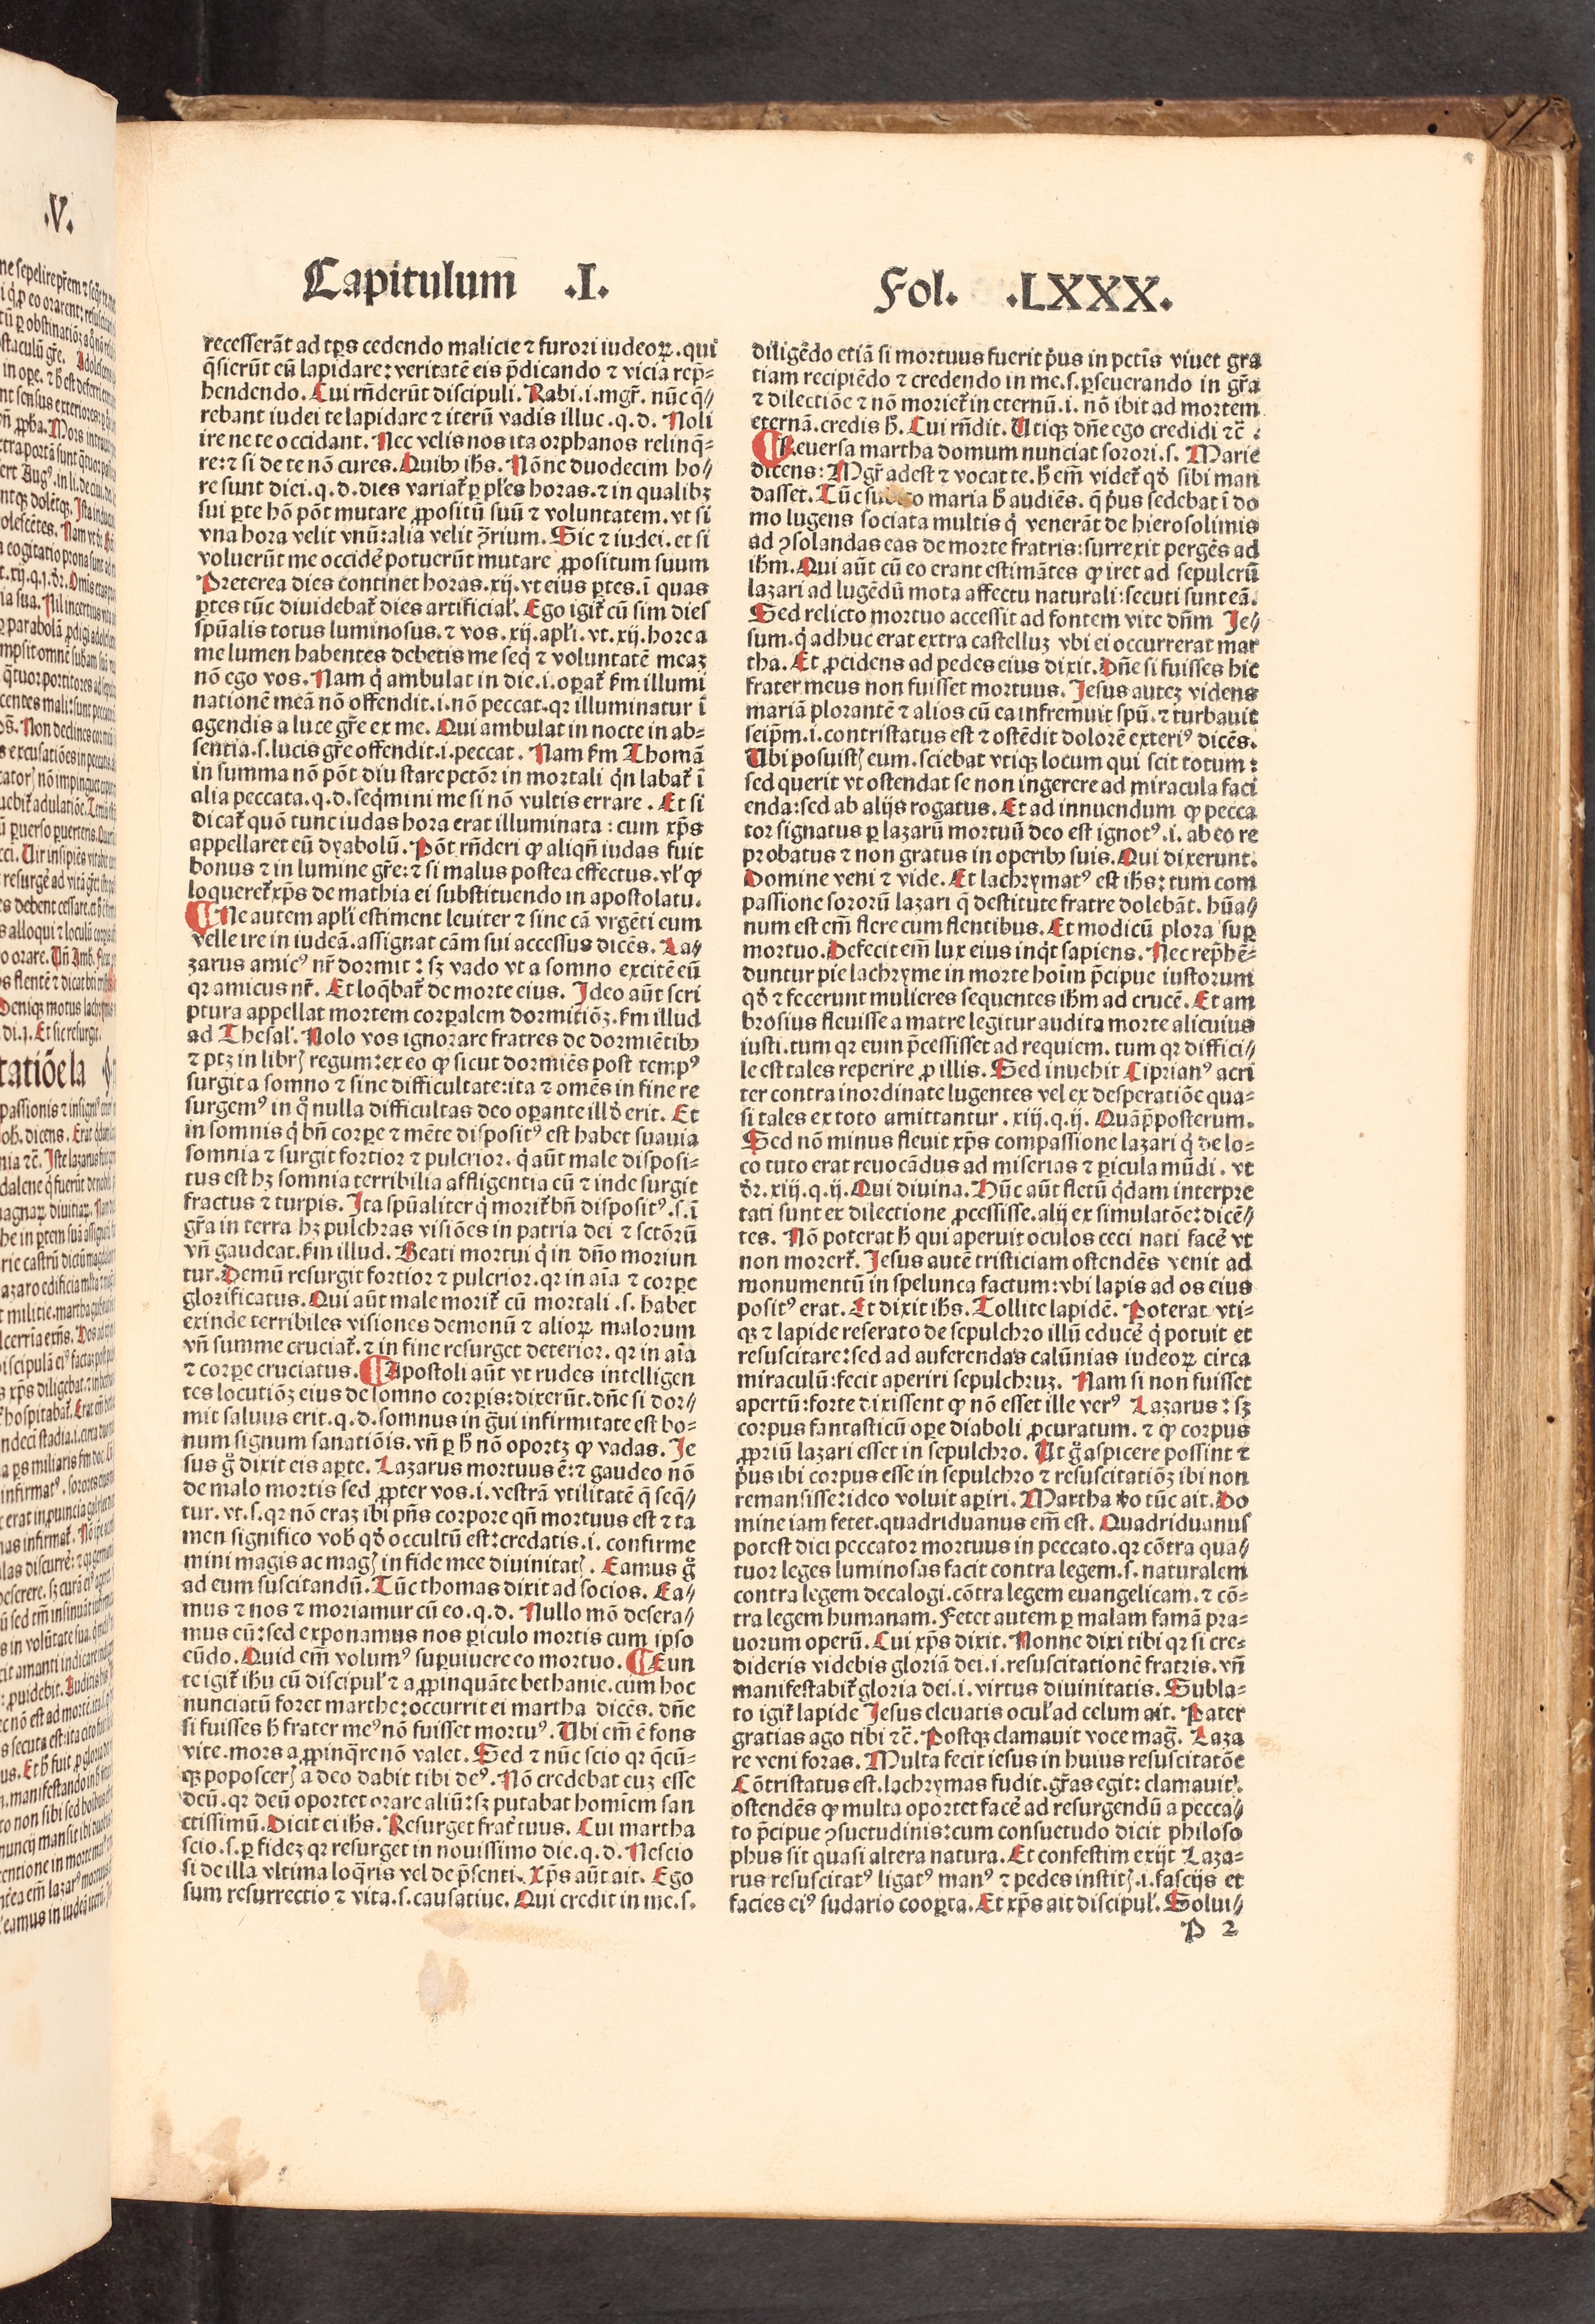 Capitulum .I.
Fol. .LXXX.
recesserāt ad tp̄s cedendo malicie ⁊ furori iudeoꝝ. qui
q̄sierūt eū lapidare: veritatē eis p̄dicando ⁊ vicia rep̄⸗
hendendo. Cui rn̄derūt discipuli. Rabi .i. mgr̄. nūc q̄⸗
rebant iudei te lapidare ⁊ iterū vadis illuc .q.d. Noli
ire ne te occidant. Nec velis nos ita orphanos relinq̄⸗
re: ⁊ si de te nō cures. Quibꝰ ihs. Nōne duodecim ho⸗
re sunt diei .q.d. dies variat̄ ꝑ pl̄es horas. ⁊ in qualibꝫ
sui ꝑte hō pōt mutare ꝓpositū suū ⁊ voluntatem. vt si
vna hora velit vnū: alia velit ꝯ̄rium. Sic ⁊ iudei. et si
voluerūt me occidē potuerūt mutare ꝓpositum suum
Preterea dies continet horas .xij. vt eius ꝑtes. ī quas
ꝑtes tūc diuidebat̄ dies artificial̓. Ego igit̄ cū sim dies
spūalis totus luminosus. ⁊ vos .xij. apl̓i. vt .xij. hore a
me lumen habentes debetis me seq̄ ⁊ voluntatē meaꝫ
nō ego vos. Nam q̇ ambulat in die .i. oꝑat̄ fm illumi
nationē meā nō offendit .i. nō peccat. qꝛ illuminatur ī
agendis a luce gr̄e ex me. Qui ambulat in nocte in ab⸗
sentia .s. lucis gr̄e offendit .i. peccat. Nam fm Thomā
in summa nō pōt diu stare pctōꝛ in mortali q̇n labat̄ ī
alia peccata. q.d. seq̄mini me si nō vultis errare. Et si
dicat̄ quō tunc iudas hora erat illuminata: cum xp̄s
appellaret eū dyabolū. Pōt rn̄deri ꝙ aliqn̄ iudas fuit
bonus ⁊ in lumine gr̄e: ⁊ si malus postea effectus. vl̓ ꝙ
loqueret̄ xp̄s de mathia ei substituendo in apostolatu.
¶ Ne autem apl̓i estiment leuiter ⁊ sine cā vrgēti eum
velle ire in iudeā. assignat cām sui accessus dicēs. La⸗
zarus amicꝰ nr̄ dormit: sꝫ vado vt a somno excitē eū
qꝛ amicus nr̄. Et loq̄bat̄ de morte eius. Ideo aūt scri
ptura appellat mortem corꝑalem dormitiōꝫ. fm illud
ad Thesal̓. Nolo vos ignorare fratres de dormiētibꝰ
⁊ ptꝫ in librꝭ regum: ex eo ꝙ sicut dormiēs post tempꝰ
surgit a somno ⁊ sine difficultate: ita ⁊ omēs in fine re
surgemꝰ in q̊ nulla difficultas deo oꝑante ill̓d erit. Et
in somnis q̇ bn̄ corꝑe ⁊ mēte dispositꝰ est habet suauia
somnia ⁊ surgit fortior ⁊ pulcrior. q̇ aūt male disposi⸗
tus est hꝫ somnia terribilia affligentia eū ⁊ inde surgit
fractus ⁊ turpis. Ita spūaliter q̇ morit̄ bn̄ dispositꝰ .s. ī
gr̄a in terra hꝫ pulchras visiōes in patria dei ⁊ sctōrū
vn̄ gaudeat. fm illud. Beati mortui q̇ in dn̄o moriun
tur. Demū resurgit fortior ⁊ pulcrior. qꝛ in aīa ⁊ corꝑe
glorificatus. Qui aūt male morit̄ cū mortali .s. habet
exinde terribiles visiones demonū ⁊ alioꝝ malorum
vn̄ summe cruciat̄. ⁊ in fine resurget deterior. qꝛ in aīa
⁊ corꝑe cruciatus. ¶ Apostoli aūt vt rudes intelligen
tes locutiōꝫ eius de somno corꝑis: dixerūt. dn̄e si dor⸗
mit saluus erit. q.d. somnus in g̊ui infirmitate est bo⸗
num signum sanatiōis. vn̄ ꝑ h̄ nō oportꝫ ꝙ vadas. Je
sus g̊ dixit eis aꝑte. Lazarus mortuus ē: ⁊ gaudeo nō
de malo mortis sed ꝓpter vos .i. vestrā vtilitatē q̄ seq̄⸗
tur. vt .s. qꝛ nō eraꝫ ibi pn̄s corpore qn̄ mortuus est ⁊ ta
men significo vob̓ qd̓ occultū est: credatis .i. confirme
mini magis ac magꝭ in fide mee diuinitatꝭ. Eamus g̊
ad eum suscitandū. Tūc thomas dixit ad socios. Ea⸗
mus ⁊ nos ⁊ moriamur cū eo. q.d. Nullo mō desera⸗
mus eū: sed exponamus nos ꝑiculo mortis cum ipso
eūdo. Quid em̄ volumꝰ suꝑuiuere eo mortuo. ¶ Eun
te igit̄ ihu cū discipul̓ ⁊ aꝓpinquāte bethanie. cum hoc
nunciatū foret marthe: occurrit ei martha dicēs. dn̄e
si fuisses h̄ frater meꝰ nō fuisset mortuꝰ. Ubi em̄ ē fons
vite. mors aꝓpinq̄re nō valet. Sed ⁊ nūc scio qꝛ q̄cū⸗
qꝫ poposcerꝭ a deo dabit tibi deꝰ. Nō credebat euꝫ esse
deū. qꝛ deū oportet orare aliū: sꝫ putabat homīem san
ctissimū. Dicit ei ihs. Resurget frat̄ tuus. Cui martha
scio .s. ꝑ fideꝫ qꝛ resurget in nouissimo die. q.d. Nescio
si de illa vltima loq̄ris vel de p̄senti. Xp̄s aūt ait. Ego
sum resurrectio ⁊ vita .s. causatiue. Qui credit in me .s.
diligēdo etiā si mortuus fuerit p̄us in pctīs viuet gra
tiam recipiēdo ⁊ credendo in me .s. ꝑseuerando in gr̄a
⁊ dilectiōe ⁊ nō moriet̄ in eternū .i. nō ibit ad mortem
eternā. credis h̄. Cui rn̄dit. Utiqꝫ dn̄e ego credidi ⁊c̄.
¶ Reuersa martha domum nunciat sorori .s. Marie
dicens: Mgr̄ adest ⁊ vocat te. h̄ em̄ videt̄ qd̓ sibi man
dasset. Tūc maria h̄ audiēs. q̄ p̄us sedebat ī do
mo lugens sociata multis q̇ venerāt de hierosolimis
ad ꝯsolandas eas de morte fratris: surrexit pergēs ad
ihm. Qui aūt cū eo erant estimātes ꝙ iret ad sepulcrū
lazari ad lugēdū mota affectu naturali: secuti sunt eā.
Sed relicto mortuo accessit ad fontem vite dn̄m Je⸗
sum. q̇ adhuc erat extra castelluꝫ vbi ei occurrerat mar
tha. Et ꝓcidens ad pedes eius dixit. Dn̄e si fuisses hic
frater meus non fuisset mortuus. Jesus auteꝫ videns
mariā plorantē ⁊ alios cū ea infremuit spū. ⁊ turbauit
seip̄m .i. contristatus est ⁊ ostēdit dolorē exteriꝰ dicēs.
Ubi posuistꝭ eum. sciebat vtiqꝫ locum qui scit totum:
sed querit vt ostendat se non ingerere ad miracula faci
enda: sed ab alijs rogatus. Et ad innuendum ꝙ pecca
tor signatus ꝑ lazarū mortuū deo est ignotꝰ .i. ab eo re
probatus ⁊ non gratus in operibꝰ suis. Qui dixerunt.
Domine veni ⁊ vide. Et lachrymatꝰ est ihs: tum com
passione sororū lazari q̄ destitute fratre dolebāt. hūa⸗
num est em̄ flere cum flentibus. Et modicū plora suꝑ
mortuo. Defecit em̄ lux eius inq̇t sapiens. Nec rep̄hē⸗
duntur pie lachryme in morte hoīm p̄cipue iustorum
qd̓ ⁊ fecerunt mulieres sequentes ihm ad crucē. Et am
brosius fleuisse a matre legitur audita morte alicuius
iusti. tum qꝛ eum p̄cessisset ad requiem. tum qꝛ diffici⸗
le est tales reperire ꝓ illis. Sed inuehit Ciprianꝰ acri
ter contra inordinate lugentes vel ex desperatiōe qua⸗
si tales ex toto amittantur .xiij.q.ij. Quāp̄posterum.
Sed nō minus fleuit xp̄s compassione lazari q̇ de lo⸗
co tuto erat reuocādus ad miserias ⁊ ꝑicula mūdi. vt
dr̄. xiij.q.ij. Qui diuina. Hūc aūt fletū q̇dam interpre
tati sunt ex dilectione ꝓcessisse. alij ex simulatōe: dicē⸗
tes. Nō poterat h̄ qui aperuit oculos ceci nati facē vt
non moreret̄. Jesus autē tristiciam ostendēs venit ad
monumentū in spelunca factum: vbi lapis ad os eius
positꝰ erat. Et dixit ihs. Tollite lapidē. Poterat vti⸗
qꝫ ⁊ lapide reserato de sepulchro illū educē q̇ potuit et
resuscitare: sed ad auferendas calūnias iudeoꝝ circa
miraculū: fecit aperiri sepulchruꝫ. Nam si non fuisset
apertū: forte dixissent ꝙ nō esset ille verꝰ Lazarus: sꝫ
corpus fantasticū oꝑe diaboli ꝓcuratum. ⁊ ꝙ corpus
ꝓpriū lazari esset in sepulchro. Ut g̊ aspicere possint ⁊
p̄us ibi corpus esse in sepulchro ⁊ resuscitatiōꝫ ibi non
remansisse: ideo voluit aꝑiri. Martha v̓o tūc ait. Do
mine iam fetet. quadriduanus em̄ est. Quadriduanus
potest dici peccator mortuus in peccato. qꝛ cōtra qua⸗
tuor leges luminosas facit contra legem .s. naturalem
contra legem decalogi. cōtra legem euangelicam. ⁊ cō⸗
tra legem humanam. Fetet autem ꝑ malam famā pra⸗
uorum operū. Cui xp̄s dixit. Nonne dixi tibi qꝛ si cre⸗
dideris videbis gloriā dei .i. resuscitationē fratris. vn̄
manifestabit̄ gloria dei .i. virtus diuinitatis. Subla⸗
to igit̄ lapide Jesus eleuatis ocul̓ ad celum ait. Pater
gratias ago tibi ⁊c̄. Postqꝫ clamauit voce maḡ. Laza
re veni foras. Multa fecit iesus in huius resuscitatōe
Cōtristatus est. lachrymas fudit. gr̄as egit: clamauit.
ostendēs ꝙ multa oportet facē ad resurgendū a pecca⸗
to p̄cipue ꝯsuetudinis: cum consuetudo dicit philoso
phus sit quasi altera natura. Et confestim exijt Laza⸗
rus resuscitatꝰ ligatꝰ manꝰ ⁊ pedes institꝭ .i. fascijs et
facies eiꝰ sudario cooꝑta. Et xp̄s ait discipul̓. Solui⸗
P 2
.V.